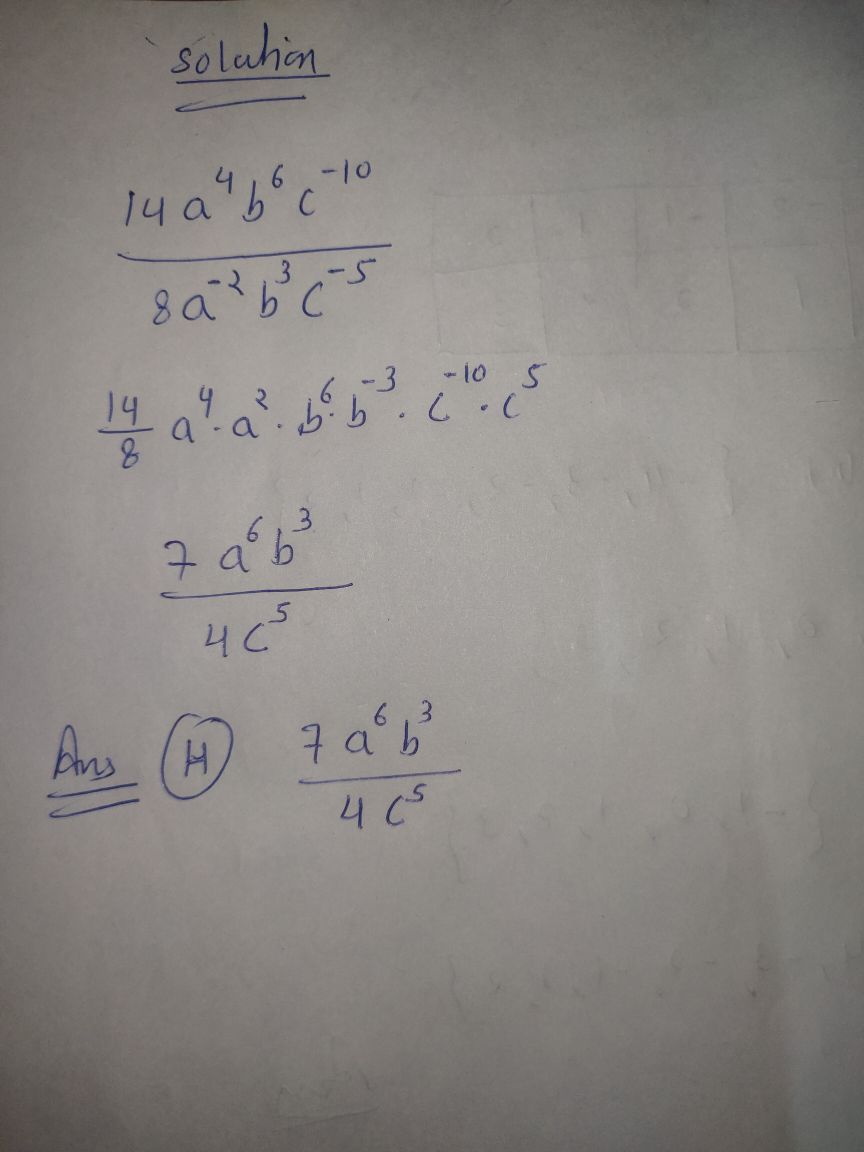 Solution
14 a⁴ b⁶ c⁻¹⁰
8 a⁻² b³ c⁻⁵
14/8 a⁴ · a² · b⁶ · b⁻³ · c⁻¹⁰ · c⁵
7 a⁶ b³
4 c⁵
Ans (H) 7 a⁶ b³
4 c⁵